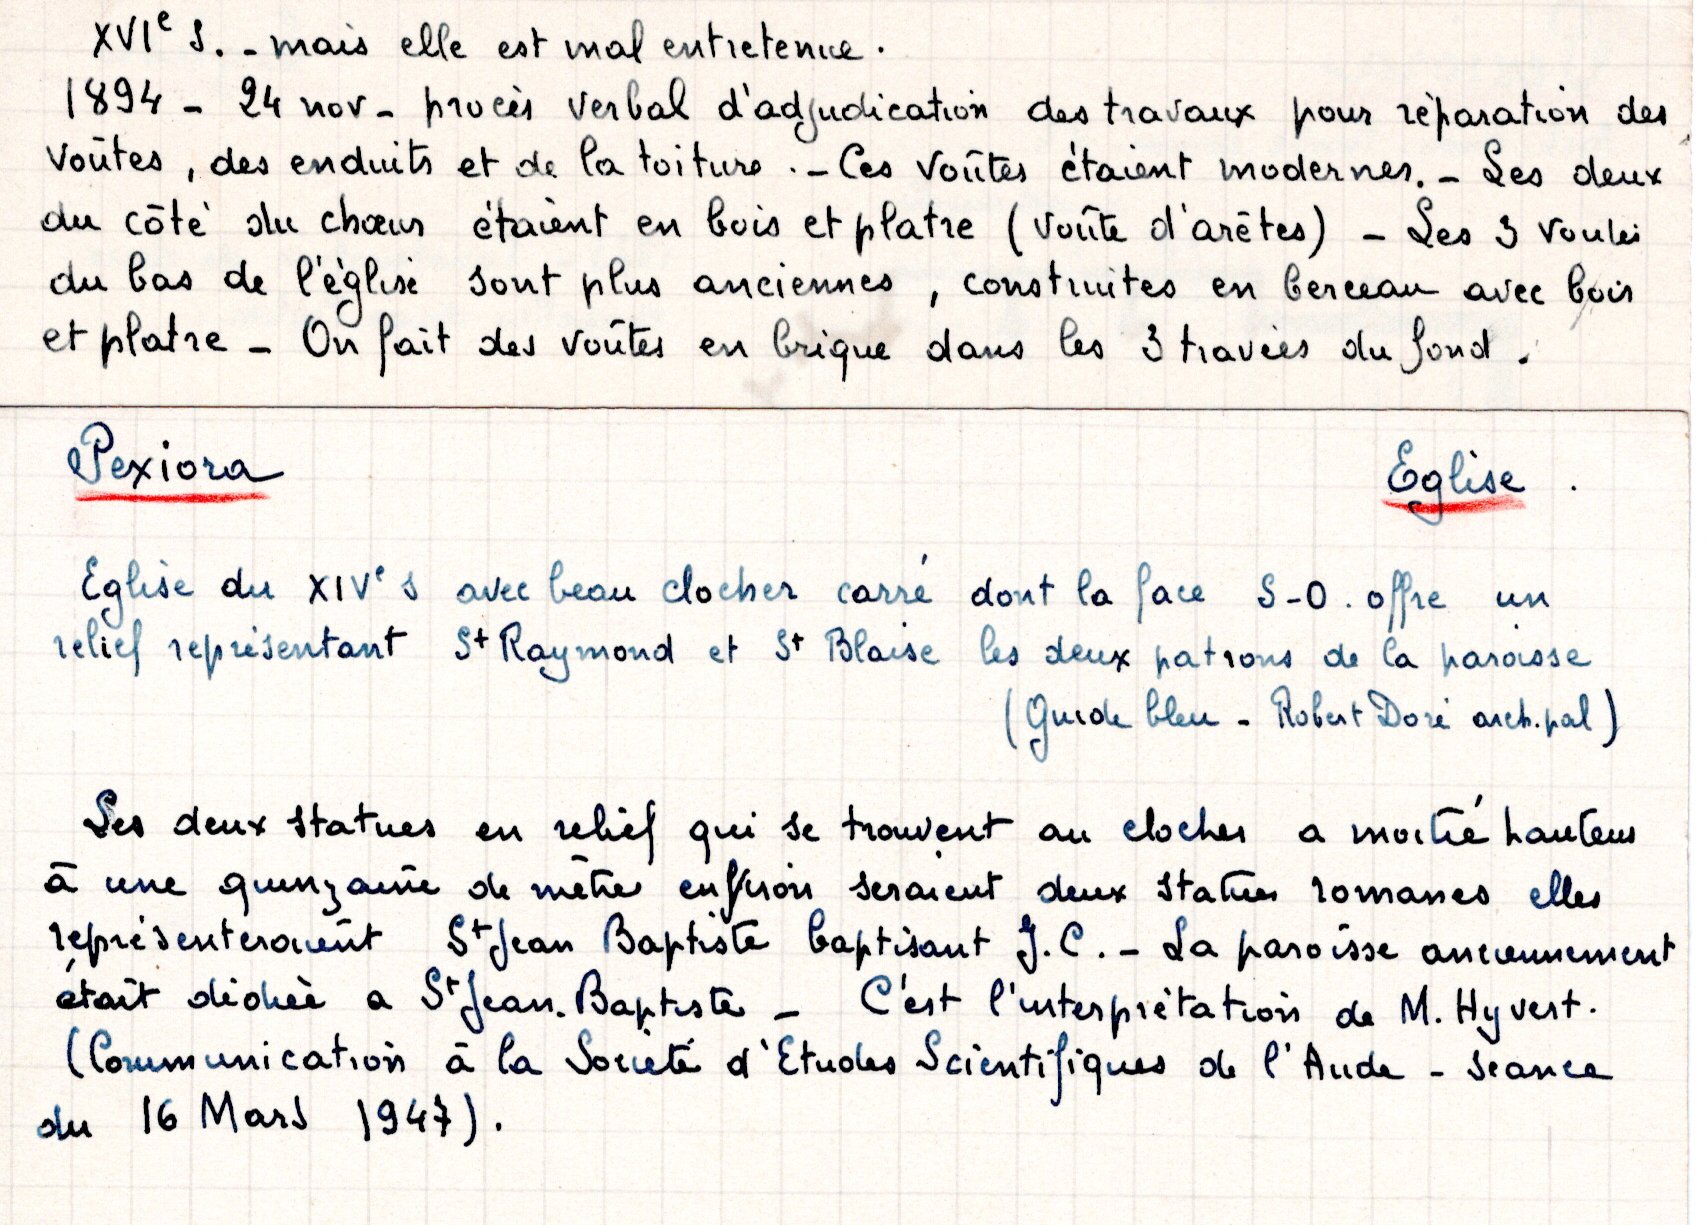 XVIe s. - mais elle est mal entretenue.
1894 - 24 nov - procès verbal d'adjudication des travaux pour réparation des
voûtes, des enduits et de la toiture. - Ces voûtes étaient modernes. - Les deux
du côté du chœur étaient en bois et platre (voûte d'arêtes) - Les 3 voutes
du bas de l'église sont plus anciennes, construites en berceau avec bois
et platre - On fait des voûtes en brique dans les 3 travées du fond.
Pexiora Eglise.
Eglise du XIVe s avec beau clocher carré dont la face S-O. offre un
relief représentant St Raymond et St Blaise les deux patrons de la paroisse
(Guide bleu - Robert Doré arch. pal)
Les deux statues en relief qui se trouvent au clocher a moitié hauteur
à une quinzaine de mètres environ seraient deux statues romanes elles
représenteraient St Jean Baptiste baptisant J.C. - La paroisse anciennement
était dédiée a St Jean. Baptiste - C'est l'interprétation de M. Hyvert.
(Communication à la Société d'Etudes Scientifiques de l'Aude - séance
du 16 Mars 1947).